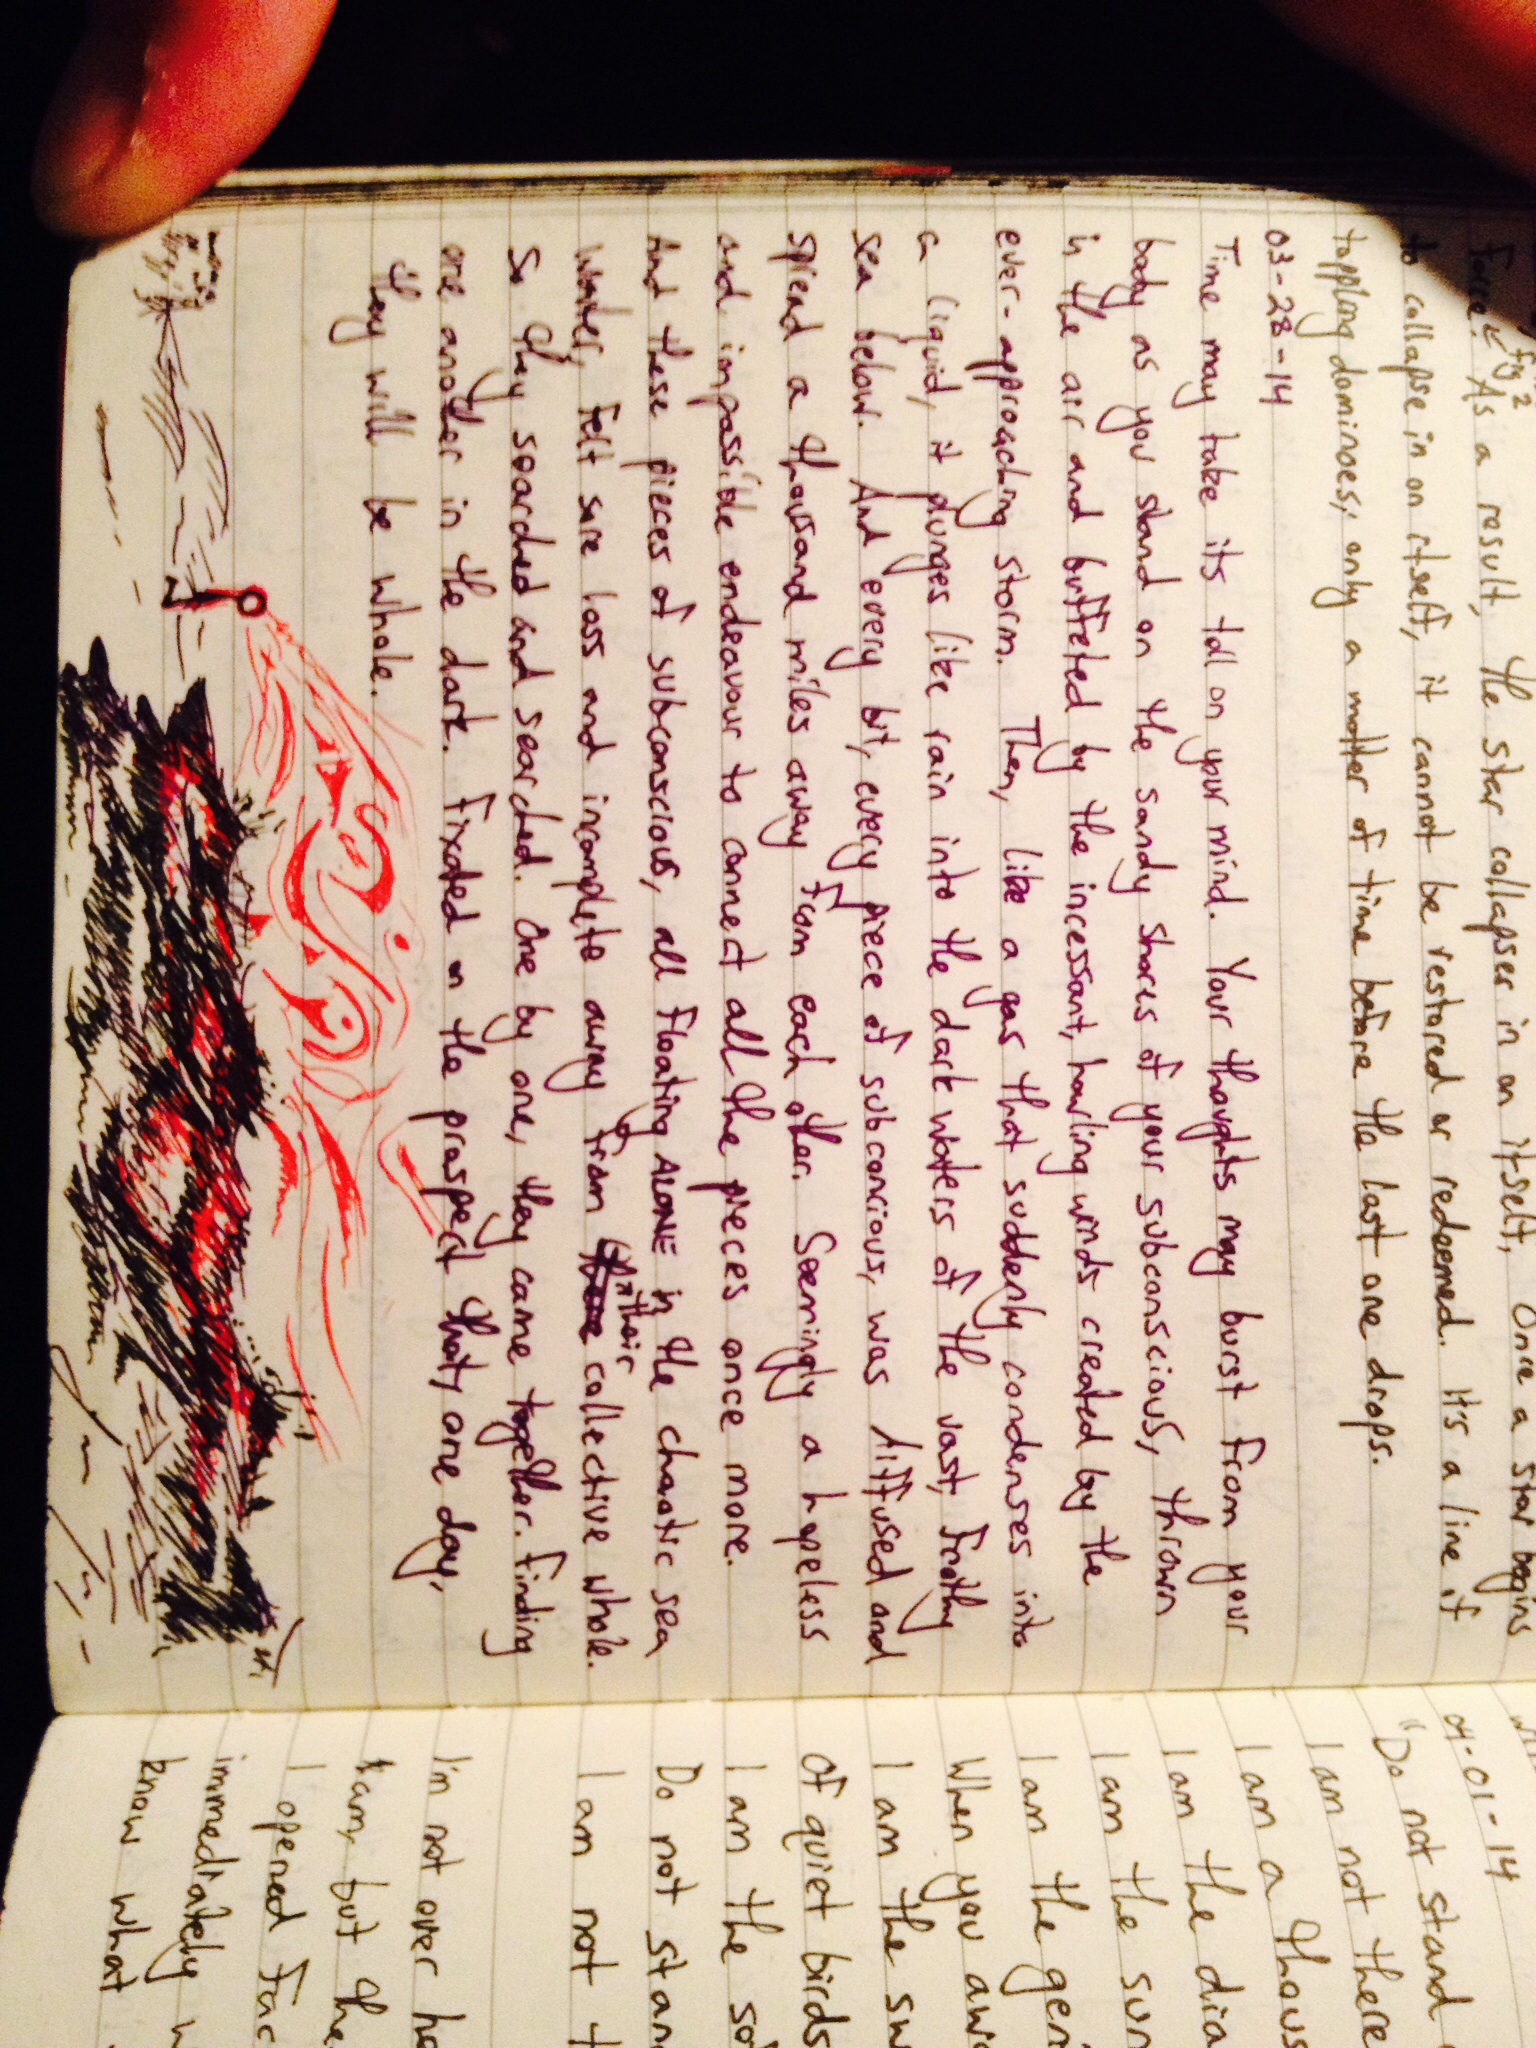 force. As a result, the star collapses in on itself. Once a star begins
fig 2
to collapse in on itself, it cannot be restored or redeemed. It's a line of
toppling dominoes; only a matter of time before the last one drops.
03-28-14
Time may take its toll on your mind. Your thoughts may burst from your
body as you stand on the sandy shores of your subconscious, thrown
in the air and buffeted by the incessant, howling winds created by the
ever-approaching storm. Then, like a gas that suddenly condenses into
a liquid, it plunges like rain into the dark waters of the vast, frothy
sea below. And every bit, every piece of subconcious, was diffused and
spread a thousand miles away from each other. Seemingly a hopeless
and impossible endeavour to connect all the pieces once more.
And these pieces of subconscious, all floating ALONE in the chaotic sea
water, felt sore loss and incomplete away from their collective whole.
So they searched and searched. One by one, they came together. Finding
one another in the dark. Fixated on the prospect that, one day,
they will be whole.
04-01-14
"Do not stand
I am not there
I am a thous
I am the dia
I am the sun
I am the gen
When you awa
I am the sw
Of quiet birds
I am the so
Do not stan
I am not t
I'm not over he
am, but the
I opened Fac
immediately w
know what